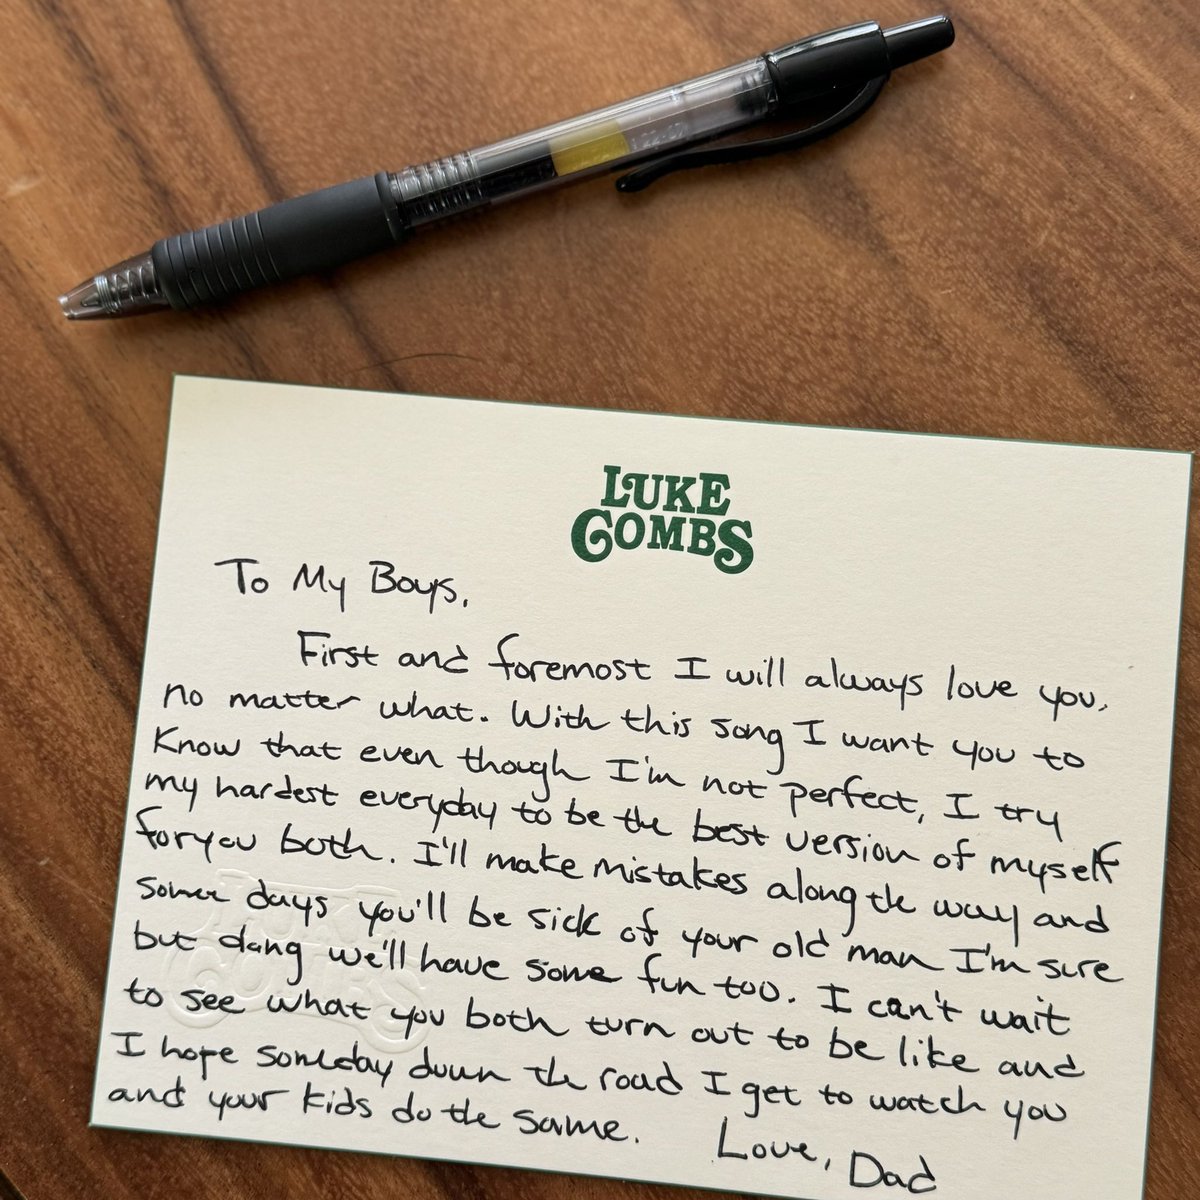 LUKE
COMBS
To My Boys,
First and foremost I will always love you,
no matter what. With this song I want you to
Know that even though I'm not perfect, I try
my hardest everyday to be the best version of myself
for you both. I'll make mistakes along the way and
some days you'll be sick of your old man I'm sure
but dang we'll have some fun too. I can't wait
to see what you both turn out to be like and
I hope someday down the road I get to watch you
and your kids do the same.
Love, Dad
LUKE
COMBS